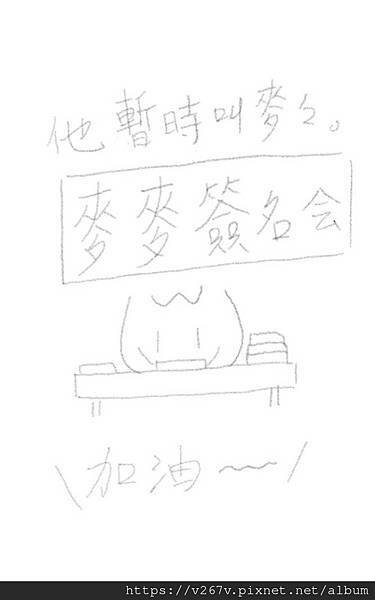 他暫時叫麥々。
麥麥簽名会
\加油~~/
https://v267v.pixnet.net/album